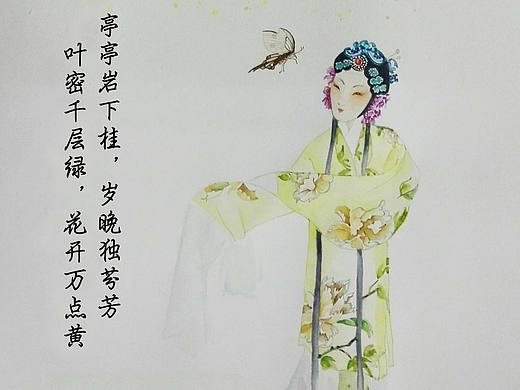 亭亭岩下桂，岁晚独芬芳
叶密千层绿，花开万点黄